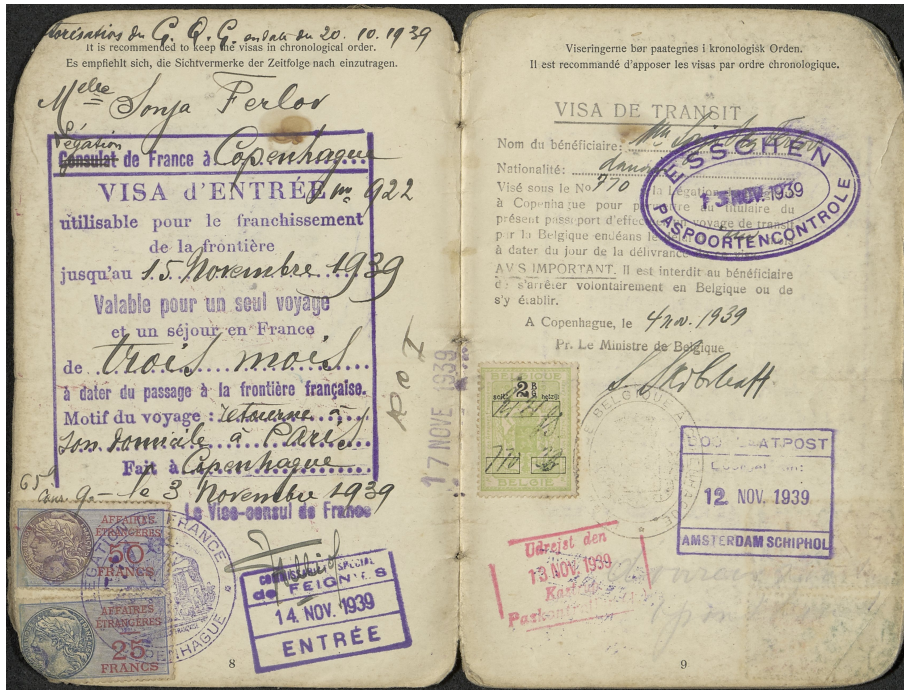 Autorisation du G. Q. G. en date du 20. 10. 1939
It is recommended to keep the visas in chronological order.
Es empfiehlt sich, die Sichtvermerke der Zeitfolge nach einzutragen.
Melle Sonja Ferlov
Légation
Consulat de France à Copenhague
VISA d'ENTRÉE
922
utilisable pour le franchissement
de la frontière
jusqu'au 15. Novembre 1939
Valable pour un seul voyage
et un séjour en France
de trois mois
à dater du passage à la frontière française.
Motif du voyage : retourne à
son domicile à Paris
Fait à Copenhague
le 3 Novembre 1939
Le Vice-consul de France
AFFAIRES
ÉTRANGÈRES
50
FRANCS
AFFAIRES
ÉTRANGÈRES
25
FRANCS
LEGATION DE FRANCE
COPENHAGUE
COMMISSARIAT SPÉCIAL
de FEIGNIES
14. NOV. 1939
ENTRÉE
8
17 NOVE 1939
Viseringerne bør paategnes i kronologisk Orden.
Il est recommandé d'apposer les visas par ordre chronologique.
VISA DE TRANSIT
Nom du bénéficiaire: Mlle
Nationalité:
Visé sous le No 770 la Légation
à Copenhague pour au titulaire du
présent passeport d'effectuer un voyage de transit
par la Belgique endéans le mois
à dater du jour de la délivrance
AVIS IMPORTANT. Il est interdit au bénéficiaire
de s'arrêter volontairement en Belgique ou de
s'y établir.
ESSCHEN
13 NOV. 1939
PASPOORTENCONTROLE
A Copenhague, le 4 nov. 1939
Pr. Le Ministre de Belgique
BELGIQUE
2
770
BELGIË
DOORLAATPOST
12 NOV. 1939
AMSTERDAM SCHIPHOL
Udrejst den
13 NOV. 1939
9